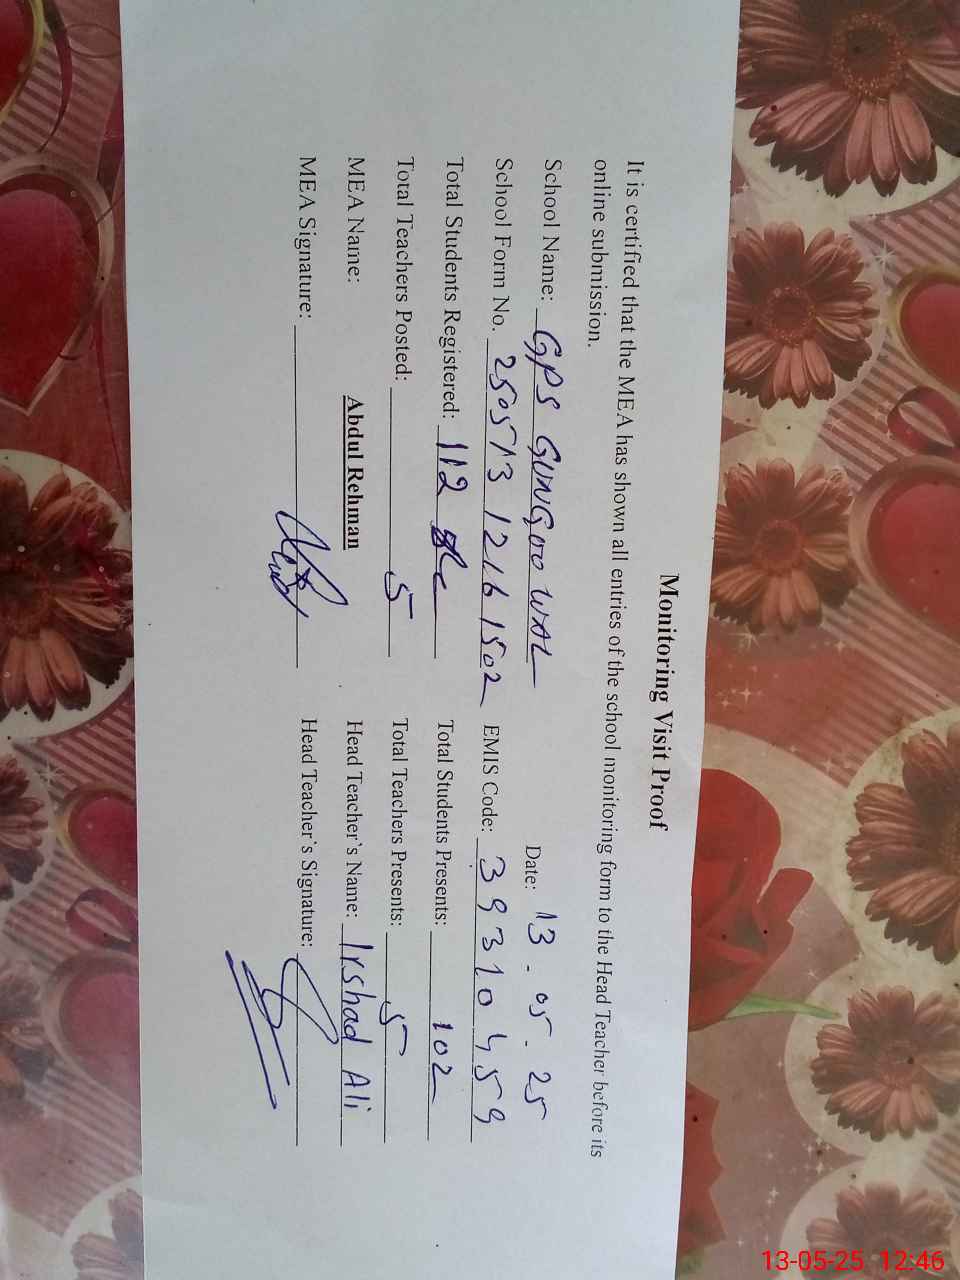 Monitoring Visit Proof
It is certified that the MEA has shown all entries of the school monitoring form to the Head Teacher before its
online submission.
School Name: GPS GUNGOO WAL Date: 13-05-25
School Form No. 250513 1216 1502 EMIS Code: 39310459
Total Students Registered: 112 Total Students Presents: 102
Total Teachers Posted: 5 Total Teachers Presents: 5
MEA Name: Abdul Rehman Head Teacher`s Name: Irshad Ali
MEA Signature: Head Teacher`s Signature:
13-05-25 12:46